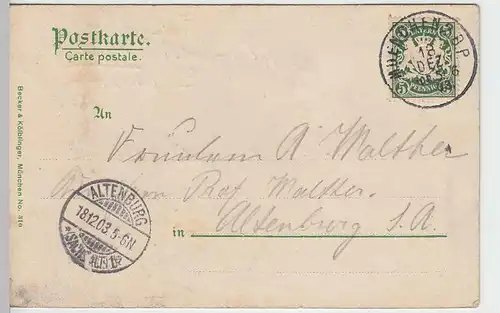 Postkarte.
Carte postale.
BAYERN
5 PFENNIG 5
MUENCHENBPP
18
DEZ
An
Fräulein A Walther
Prof. Walther.
in Altenburg S. A.
ALTENBURG
18.12.03.5-6N
Becker & Kölblinger, München No. 316